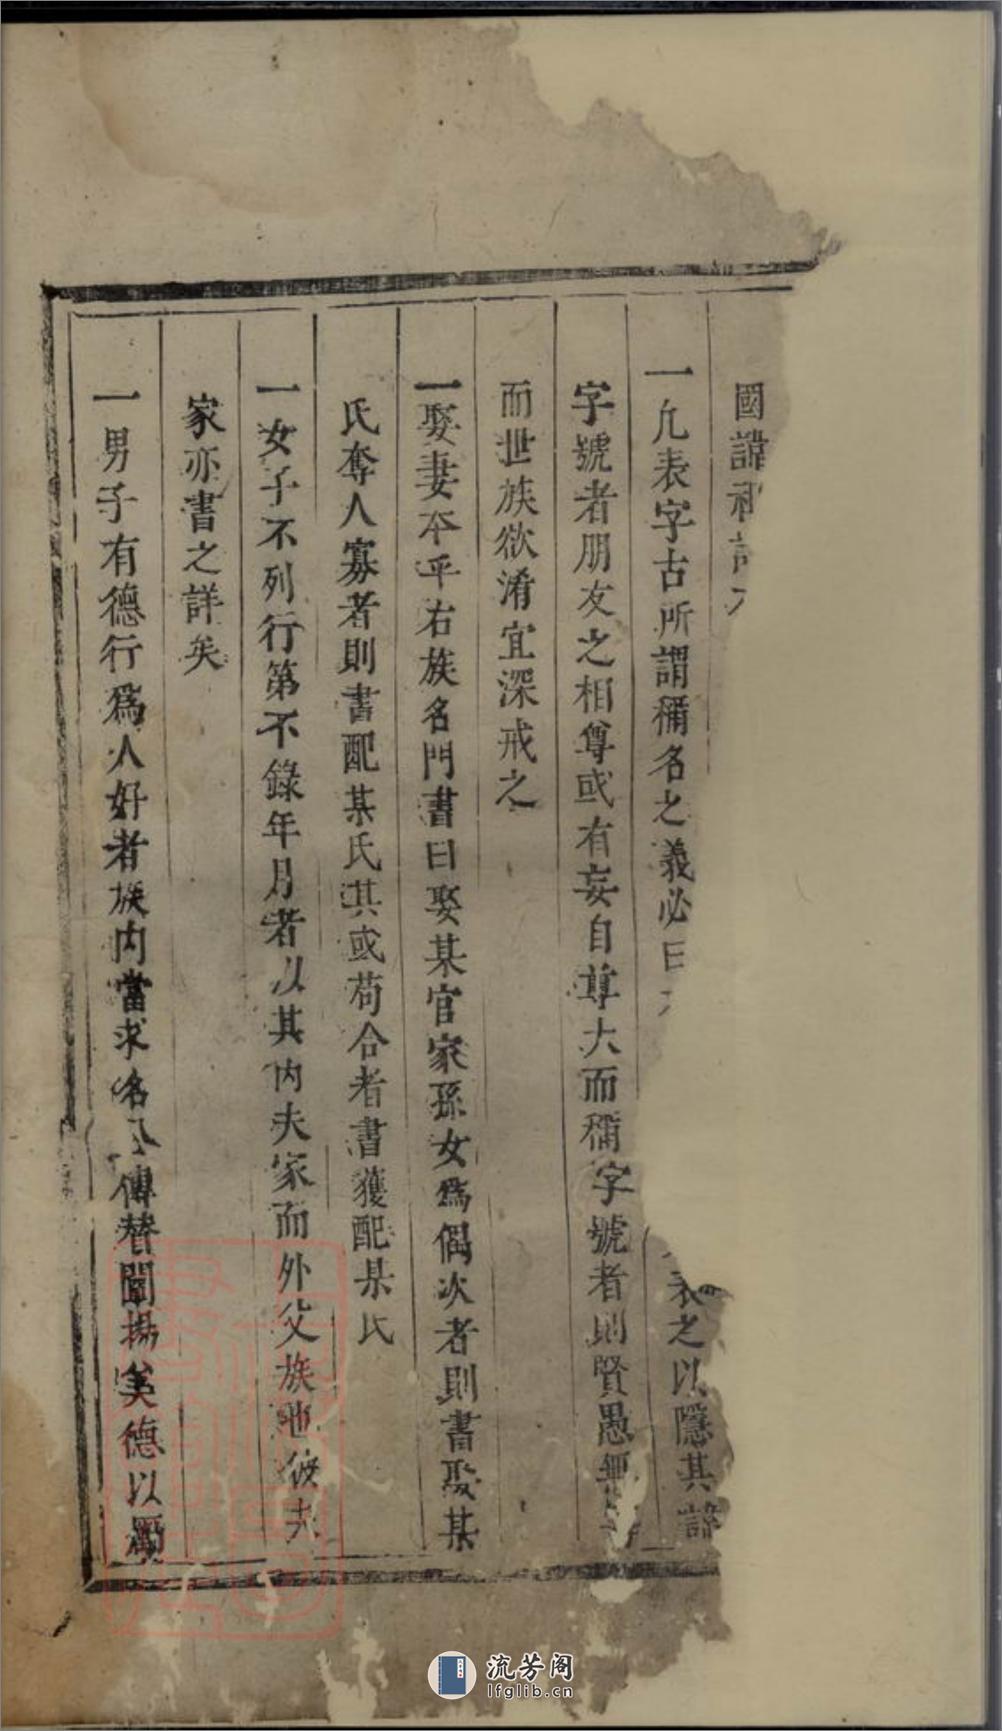 國諱
一凡表字古所謂稱名之義必曰
表之以隱其諱
字號者朋友之相尊或有妄自尊大而稱字號者則賢愚無
而世族欲淆宜深戒之
一娶妻本平右族名門書曰娶某官家孫女為偶次者則書娶某
氏奪人寡者則書配某氏其或苟合者書獲配某氏
一女子不列行第不錄年月者以其內夫家而外父族也彼夫
家亦書之詳矣
一男子有德行爲人好者族内當求名公傳替闡揚美德以勵
流芳阁
lfglib.cn